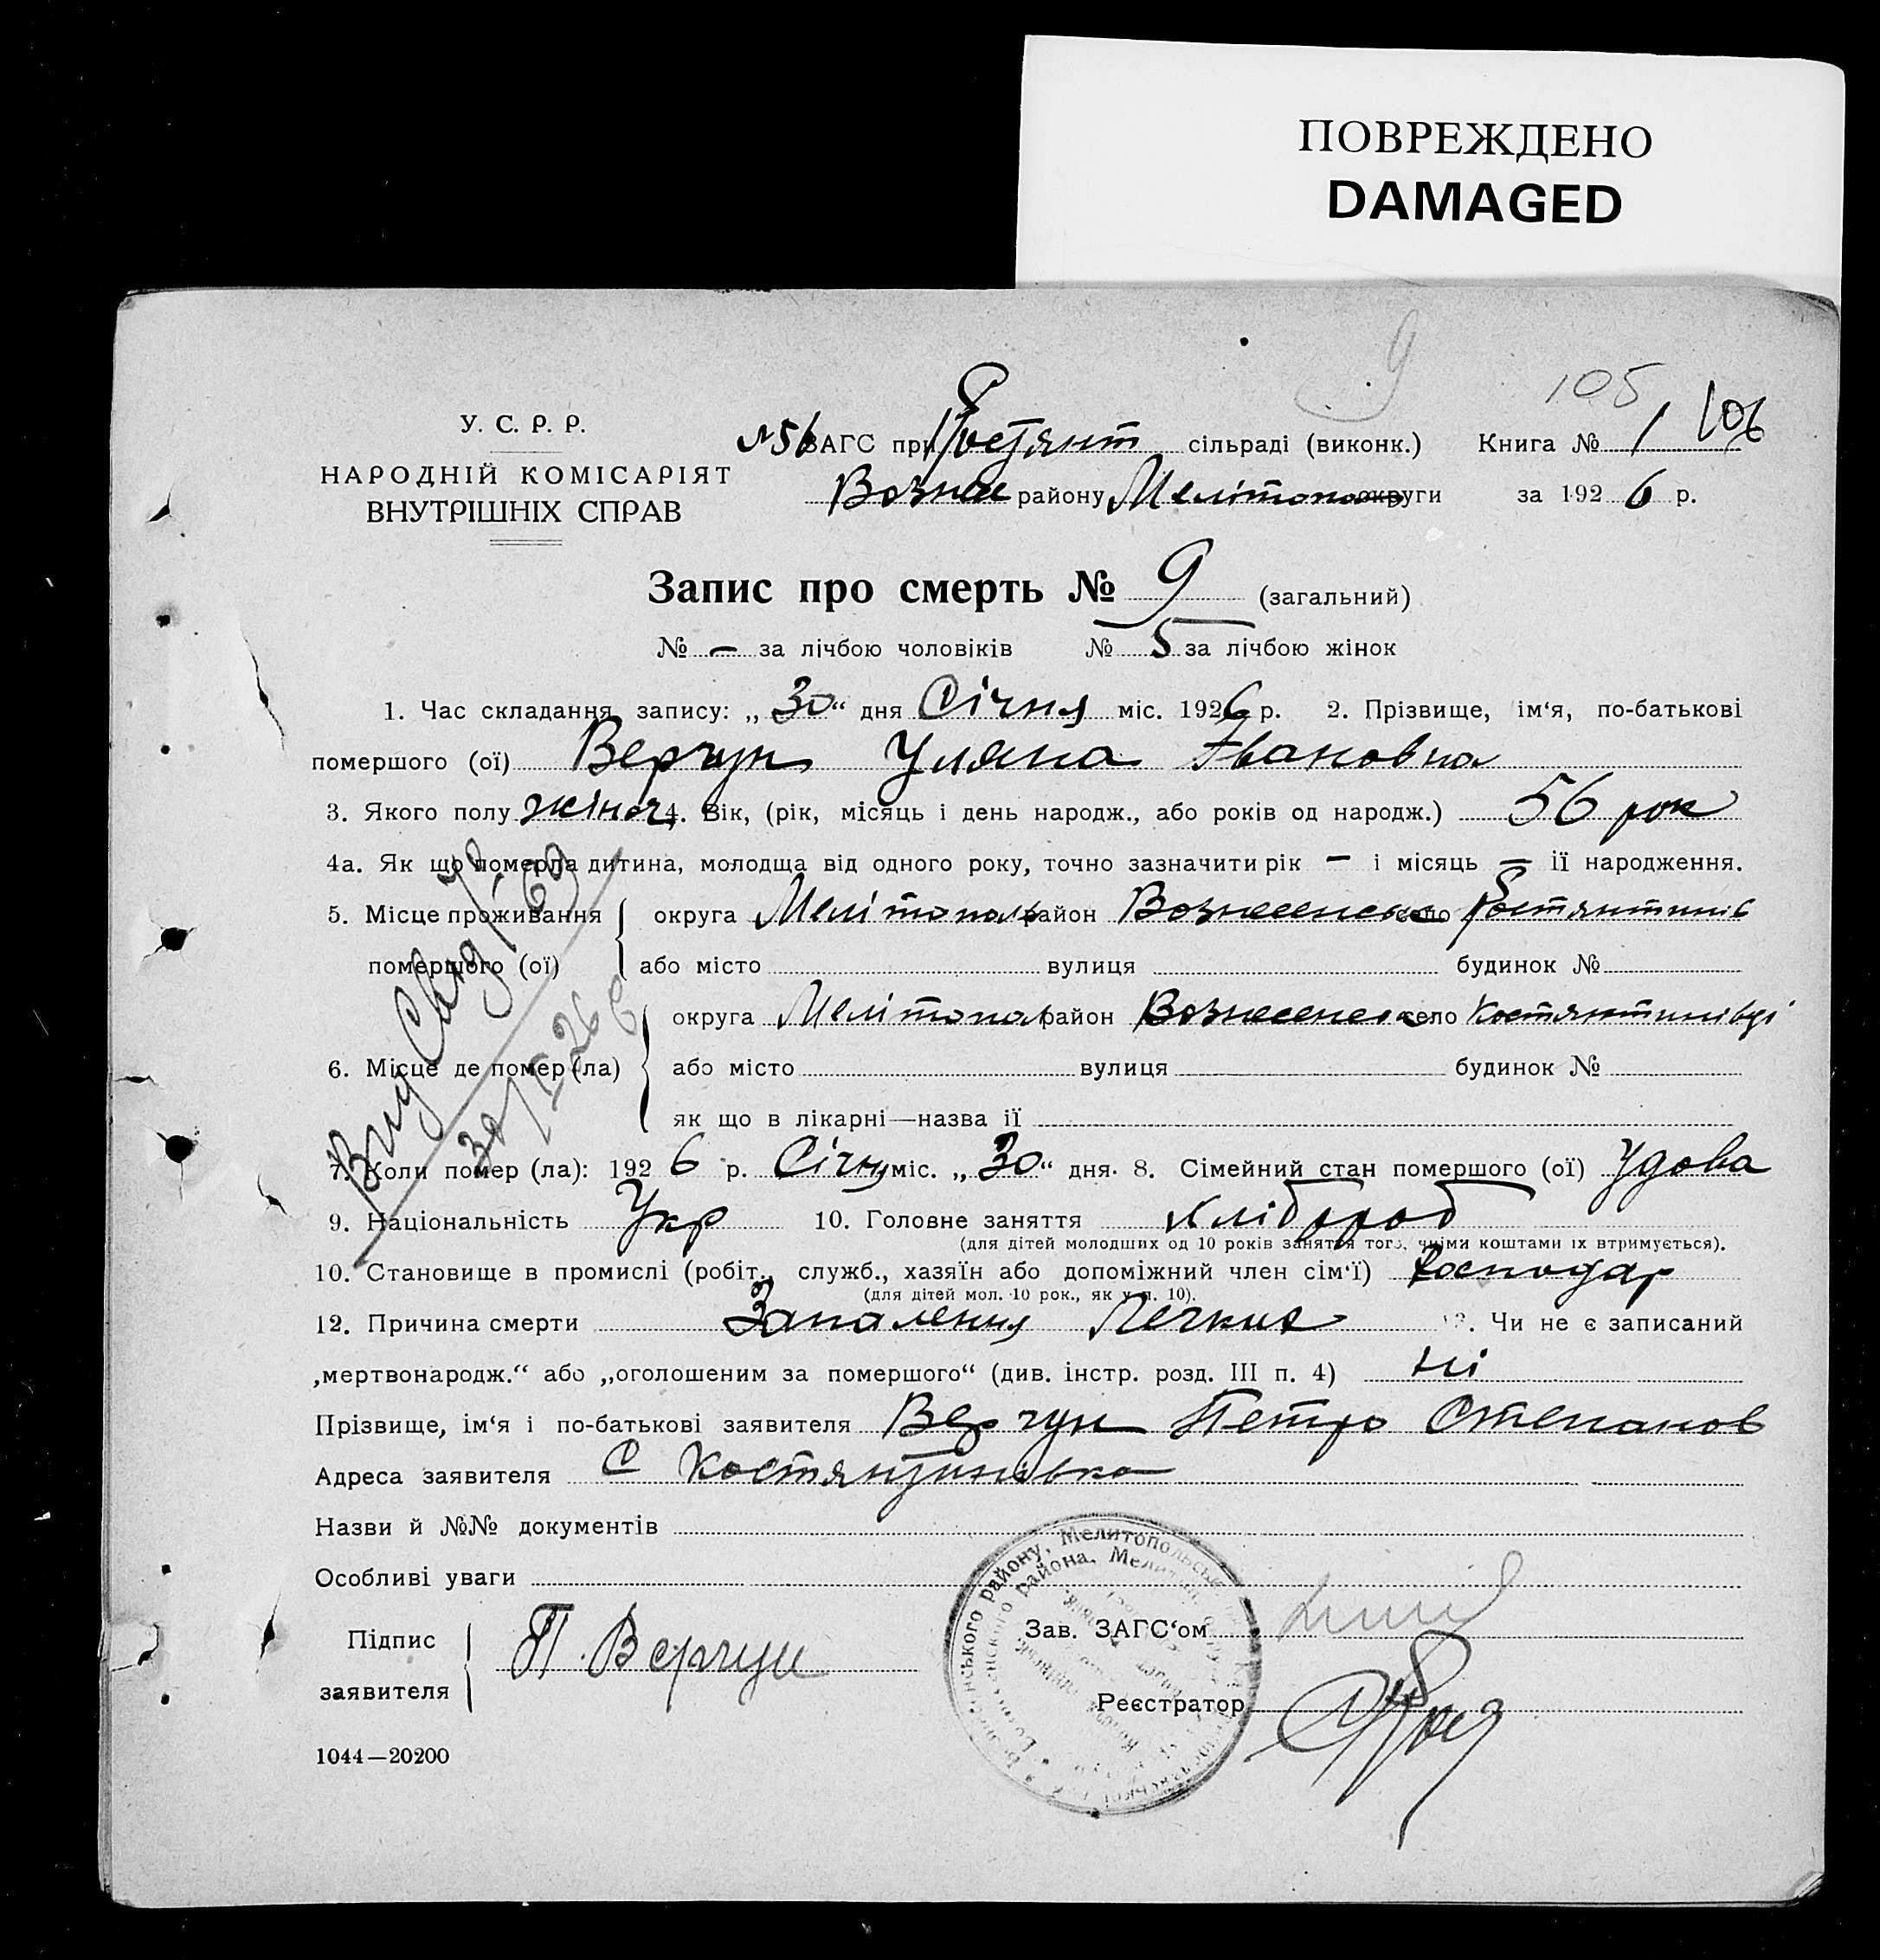 ПОВРЕЖДЕНО
DAMAGED
9
105
106
У. С. Р. Р.
НАРОДНІЙ КОМІСАРІЯТ
ВНУТРІШНІХ СПРАВ
№56 ЗАГС при Костянт сільраді (виконк.) Книга № 1
Вознес району Мелітополь округи за 1926 р.
Запис про смерть № 9 (загальний)
№ — за лічбою чоловіків № 5 за лічбою жінок
1. Час складання запису: „30“ дня Січня міс. 1926 р. 2. Прізвище, ім‘я, по-батькові
помершого (ої) Верчун Уляна Івановна
3. Якого полу жіноч 4. Вік, (рік, місяць і день народж., або років од народж.) 56 рок
4а. Як що померла дитина, молодща від одного року, точно зазначити рік — і місяць — ії народження.
5. Місце проживання округа Мелітополь район Вознесенськ село Костянтинів
помершого (ої) або місто вулиця будинок №
округа Мелітопол район Вознесенськ село Костянтинівці
6. Місце де помер (ла) або місто вулиця будинок №
як що в лікарні—назва ії
7. Коли помер (ла): 1926 р. Січня міс. „30“ дня. 8. Сімейний стан помершого (ої) Удова
9. Національність Укр 10. Головне заняття хлібороб
(для дітей молодших од 10 років заняття того, чиїми коштами їх втримується).
10. Становище в промислі (робіт., служб., хазяїн або допоміжний член сім‘ї) Господар
(для дітей мол. 10 рок., як у п. 10).
12. Причина смерти Запалення Легких 13. Чи не є записаний
„мертвонародж.“ або „оголошеним за помершого“ (див. інстр. розд. III п. 4) ні
Прізвище, ім‘я і по-батькові заявителя Верчун Петро Степанов
Адреса заявителя С Костянтинівка
Назви й №№ документів
Особливі уваги
Підпис
заявителя П. Верчун
Зав. ЗАГС‘ом
Реєстратор
1044—20200